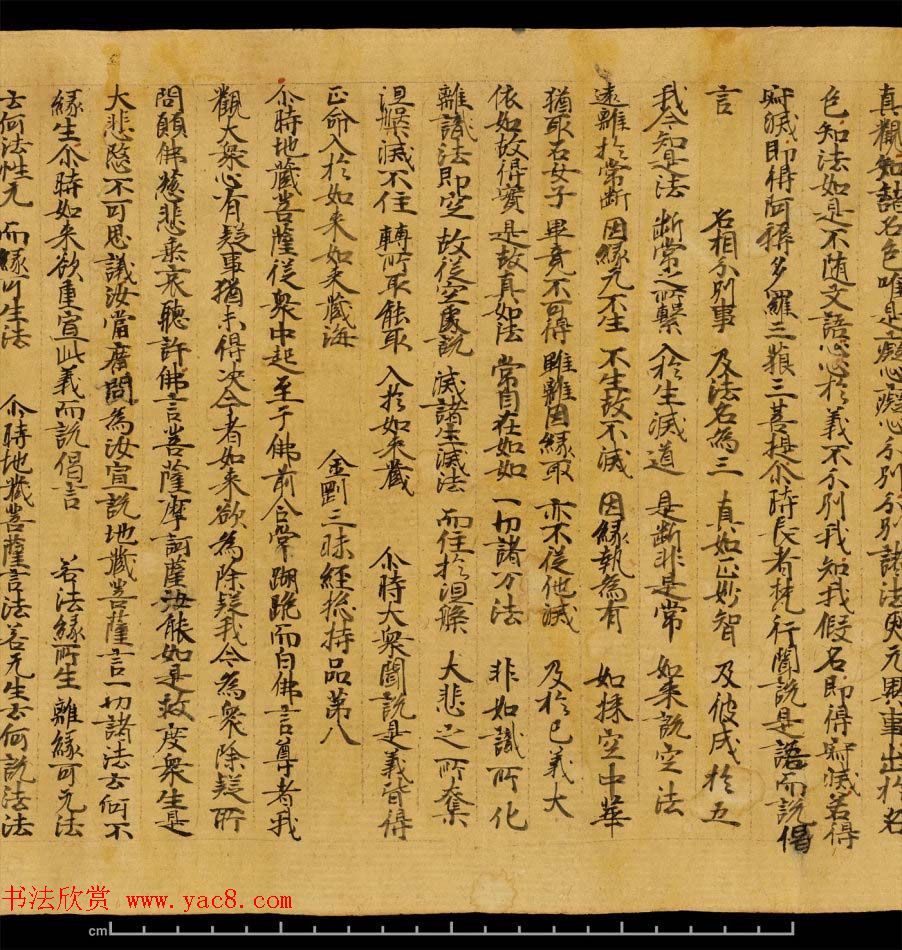 真觀知諸名色唯是癡心癡心分別分別諸法更无異事出於名
色知法如是不随文語心心於義不分別我知我假名即得寂滅若得
寂滅即得阿耨多羅三藐三菩提尒時長者梵行聞說是語而說偈
言 名相分別事 及法名為三 真如正妙智 及彼成於五
我今知是法 断常之所繫 入於生滅道 是断非是常 如來說空法
遠離於常断 因緣无不生 不生故不滅 因緣執為有 如採空中華
猶取石女子 畢竟不可得 離離因緣取 亦不從他滅 及於已義大
依如故得實 是故真如法 常自在如如 一切諸万法 非如識所化
離識法即空 故從空處說 滅諸生滅法 而住於涅槃 大悲之所奪
涅槃滅不住 轉所取能取 入於如来藏 尒時大衆聞說是義皆得
正命入於如来如来藏海 金剛三昧經捴持品第八
尒時地藏菩薩從衆中起至于佛前合掌䠒跪而白佛言尊者我
觀大衆心有疑事猶未得決今者如来欲為除疑我今為衆除疑所
問願佛慈悲垂哀聽許佛言菩薩摩訶薩汝能如是救度衆生是
大悲愍不可思議汝當廣問為汝宣說地藏菩薩言一切諸法云何不
緣生尒時如来欲重宣此義而說偈言 若法緣所生 離緣可无法
云何法性无 而緣可生法 尒時地藏菩薩言法若无生云何說法法
书法欣赏 www.yac8.com
cm